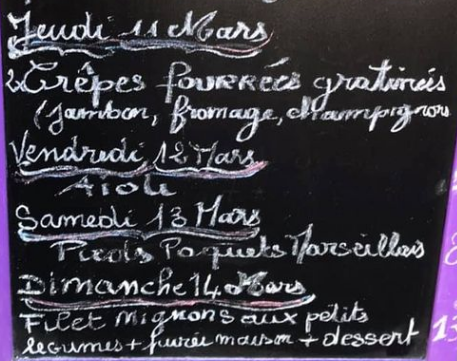 Jeudi 11 Mars
2 Crêpes fourrées gratinées
(Jambon, fromage, champignons
Vendredi 12 Mars
Aïoli
Samedi 13 Mars
Pieds Paquets Marseillais
Dimanche 14 Mars
Filet Mignons aux petits
legumes + purée maison + dessert